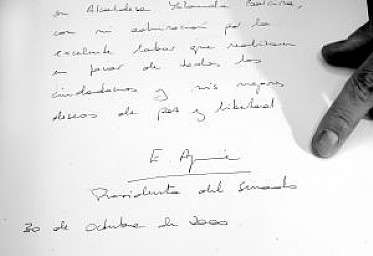 su Alcaldesa Yolanda Barcina,
con mi admiración por la
excelente labor que realizan
en favor de todos los
ciudadanos y mis mejores
deseos de paz y libertad
E. Aguirre
Presidenta del Senado
30 de Octubre de 2000